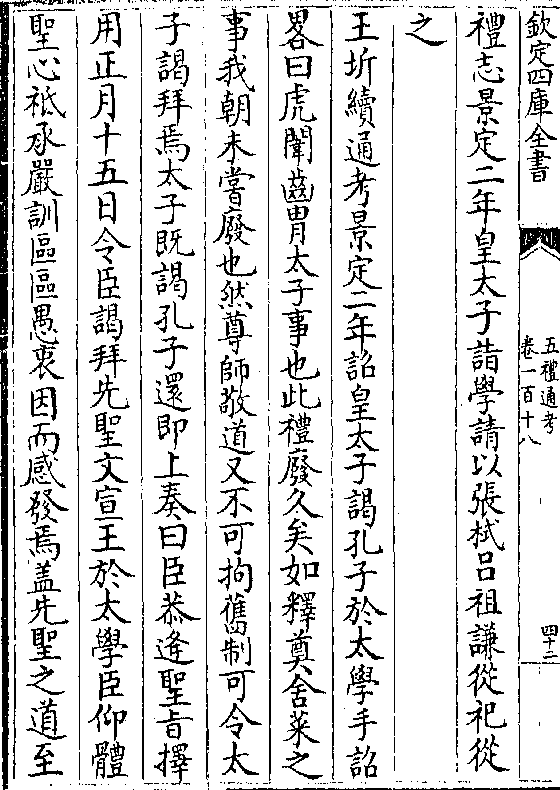 欽定四庫全書
五禮通考
卷一百十八
四十二
禮志景定二年皇太子詣學請以張栻吕祖謙從祀從
之
王圻續通考景定二年詔皇太子謁孔子於太學手詔
畧曰虎闈齒胄太子事也此禮廢久矣如釋奠舍菜之
事我朝未嘗廢也然尊師敬道又不可拘舊制可令太
子謁拜焉太子既謁孔子還即上奏曰臣恭逢聖旨擇
用正月十五日令臣謁拜先聖文宣王於太學臣仰體
聖心祗承嚴訓區區愚衷因而感發焉盖先聖之道至